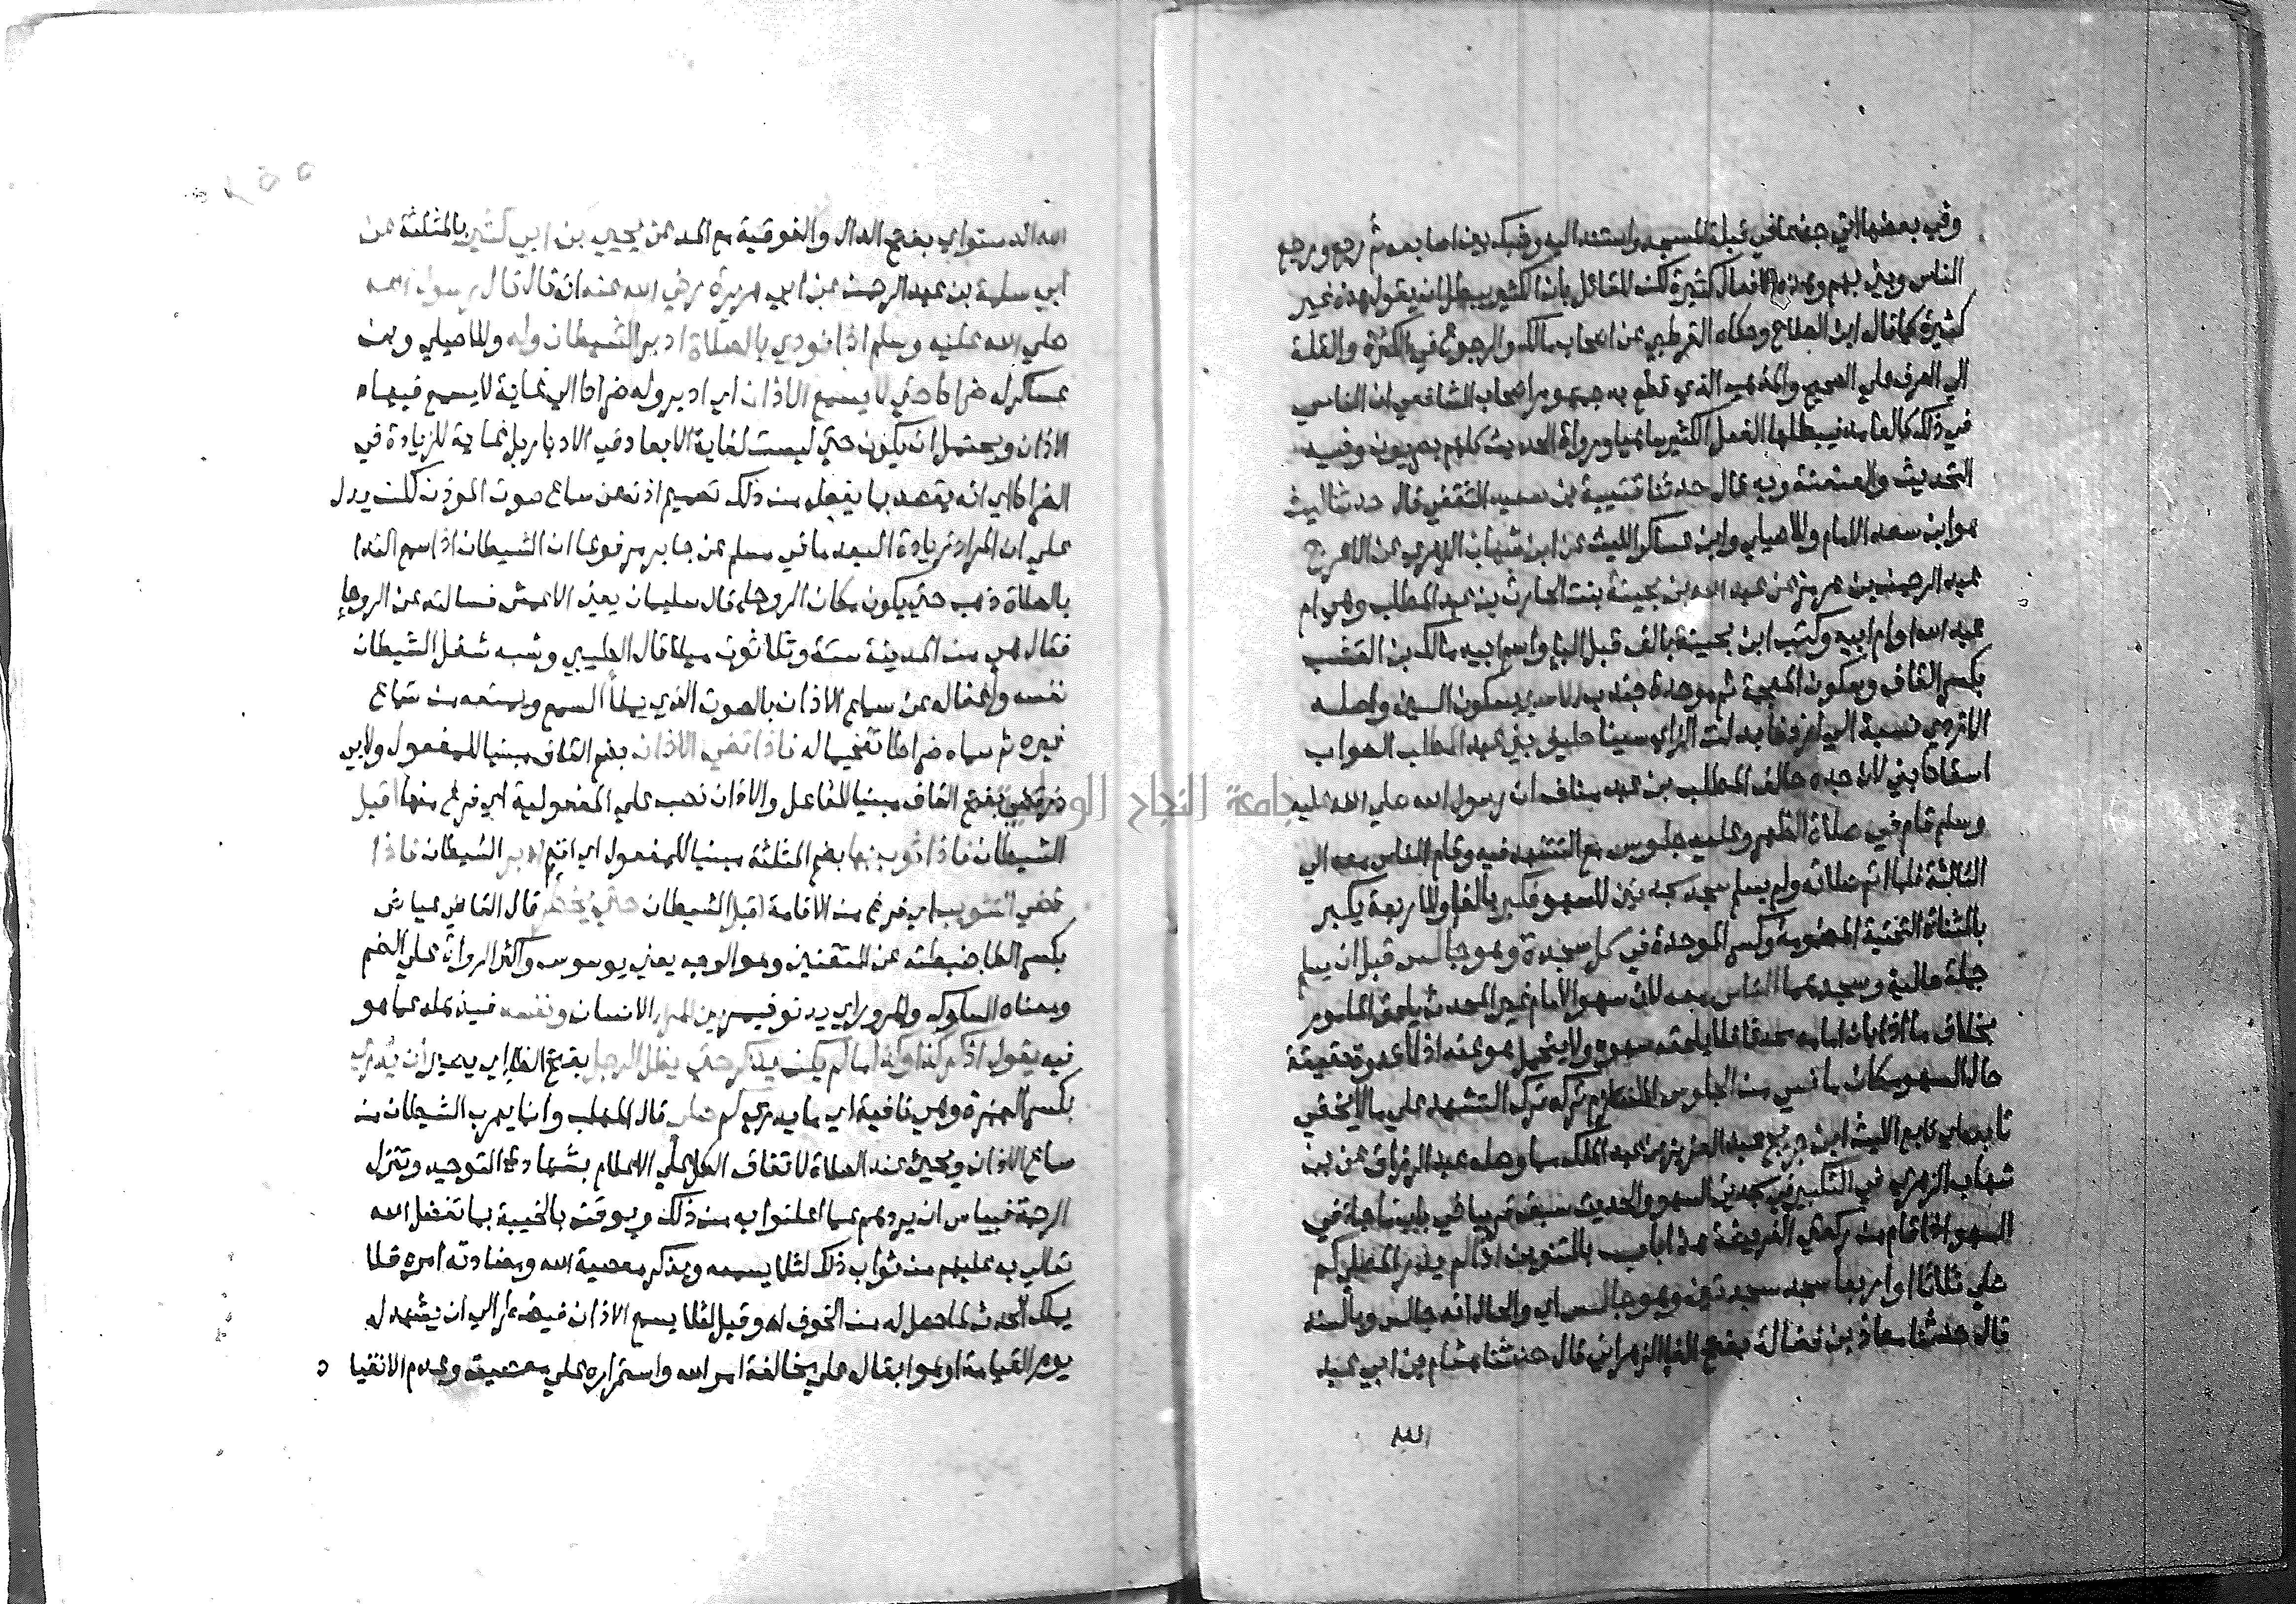 وفي بعضها اتي جذعا في قبلة المسجد واستند اليه وشبك بين اصابعه ثم رجع ورجع
الناس وبني بهم وهذه الافعال كثيرة لكن للقائل بان الكثير يبطل ان يقول هذه غير
كثيرة كما قاله ابن الصلاح وحكاه القرطبي عن اصحاب مالك والرجوع في الكثرة والقلة
الي العرف علي الصحيح والمذهب الذي قطع به جمهور اصحاب الشافعي ان الناسي
في ذلك كالعامد فيبطلها الفعل الكثير ساهيا ورواة الحديث كلهم بصريون وفيه
التحديث والعنعنة وبه قال حدثنا قتيبة بن سعيد الثقفي قال حدثنا ليث
هو ابن سعد الامام وللاصيلي وابن عساكر الليث عن ابن شهاب الزهري عن الاعرج
عبد الرحمن بن هرمز عن عبد الله بن بحينة بنت الحارث بن عبد المطلب وهي ام
عبد الله او ام ابيه وكتب ابن بحينة بالف قبل البا واسم ابيه مالك بن القشب
بكسر القاف وسكون المعجمة ثم موحدة جندب الاسدي بسكون السين واصله
الازدي نسبة الي ازد فابدلت الزاي سينا حليف بني عبد المطلب الصواب
اسقاط بني لان جده حالف المطلب بن عبد مناف ان رسول الله صلي الله عليه
وسلم قام في صلاة الظهر وعليه جلوس مع التشهد فيه وقام الناس معه الي
الثالثة فلما اتم صلاته ولم يسلم سجد سجدتين للسهو فكبر بالفا وللاربعة يكبر
بالمثناة التحتية المضمومة وكسر الموحدة في كل سجدة وهو جالس قبل ان يسلم
جملة حالية وسجدهما الناس معه لان سهو الامام غير المحدث يلحق الماموم
بخلاف ما اذا بان امامه محدثا فلا يلحقه سهوه ولا يتحمل هو عنه اذ لا قدوة حقيقة
حال السهو مكان ما نسي من الجلوس المستلزم تركه ترك التشهد علي ما لا يخفي
تابعه اي تابع الليث ابن جريج عبد العزيز بن عبد الملك مما وصله عبد الرزاق عن بن
شهاب الزهري في التكبير في سجدتي السهو والحديث سبق قريبا في باب ما جا في
السهو اذا قام من ركعتي الفريضة هذا باب بالتنوين اذا لم يدر المصلي كم
صلي ثلاثا او اربعا سجد سجدتين وهو جالس اي والحال انه جالس وبالسند
قال حدثنا معاذ بن فضالة بفتح الفا الزهراني قال حدثنا هشام بن ابي عبد
الله
الله الدستواي بفتح الدال والفوقية مع المد عن يحيي بن ابي كثير بالمثلثة عن
ابي سلمة بن عبد الرحمن عن ابي هريرة رضي الله عنه انه قال قال رسول الله
صلي الله عليه وسلم اذا نودي بالصلاة ادبر الشيطان وله وللاصيلي وبن
عساكر له ضراط حتي لا يسمع الاذان اي ادبر وله ضراط الي غاية لا يسمع فيها
الاذان ويحتمل ان يكون حتي ليست لغاية الابعاد في الادبار بل غاية للزيادة في
الضراط اي انه يقصد بما يفعل من ذلك تصميم اذنه عن سماع صوت الموذن لكن يدل
علي ان المراد زيادة البعد ما في مسلم عن جابر مرفوعا ان الشيطان اذا سمع الندا
بالصلاة ذهب حتي يكون مكان الروحا قال سليمان يعني الاعمش فسالته عن الروحا
فقال هي من المدينة ستة وثلاثون ميلا قال الطيبي وشبه شغل الشيطان
نفسه واغفاله عن سماع الاذان بالصوت الذي يملأ السمع ويمنعه من سماع
غيره ثم سماه ضراطا تقبيحا له فاذا قضي الاذان بضم القاف مبنيا للمفعول ولابي
ذر قضي بفتح القاف مبنيا للفاعل والاذان نصب علي المفعولية اي فرغ منها اقبل
الشيطان فاذا ثوب بها بضم المثلثة مبنيا للمفعول اي اقيم ادبر الشيطان فاذا
قضي التثويب اي فرغ من الاقامة اقبل الشيطان حتي يخطر قال القاضي عياض
بكسر الطا ضبطته عن المتقنين وهو الوجه يعني يوسوس واكثر الرواة علي الضم
ومعناه السلوك والمرور اي يدنو فيمر بين المرء الانسان ونفسه فيذهله عما هو
فيه يقول اذكر كذا وكذا ما لم يكن يذكر حتي يظل الرجل بفتح الظا اي يصير ان يدري
بكسر الهمزة وهي نافية اي ما يدري كم صلي قال المهلب وانما يهرب الشيطان من
سماع الاذان ويجيء عند الصلاة لاتفاق الكل علي الاعلام بشهادة التوحيد وتنزل
الرحمة فييأس ان يردهم عما اعلنوا به من ذلك ويوقن بالخيبة بما تفضل الله
تعالي به عليهم من ثواب ذلك لئلا يسمعه ويذكر معصية الله ومضادته امره فلا
يملك الحدث لما حصل له من الخوف له وقيل لئلا يسمع الاذان فيضطر الي ان يشهد له
يوم القيامة او هو ابقا له علي مخالفة امر الله واستمراره علي معصيته وعدم الانقيا د
جامعة النجاح الوطنية